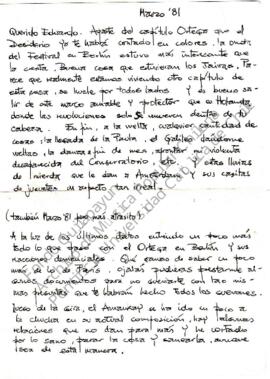 Marzo '81
Querido Eduardo. Aparte del capítulo Ortega que el
Desiderio ya te habrá contado en colores, la onda
del Festival en Berlín estuvo más interesante que
la cresta. Buena cosa que estuvieran los Jaivas. Pare-
ce que realmente estamos viviendo otro capítulo de
esta cosa, se huele por todos lados. Y es bueno sa-
lir de este marco amable y protector que es Holanda
donde las revoluciones solo se mueven dentro de tu
cabeza. En fin, a la vuelta, cualquier cantidad de
cosas: la llegada de la Paula, el Galilea dándome
vueltas, la danza a fin de mes, afrontar mi violenta
desaparición del Conservatorio, etc. Y otras lluvias
de mierda que le dan a Amsterdam y sus casitas
de juguetes un aspecto tan irreal.
(también Marzo '81 pero más atrasito)
A la luz de los últimos datos entiendo un poco más
todo lo que pasó con el Ortega en Berlín y sus
reacciones demenciales. Qué ganas de saber un poco
más de lo de París. Ojalá pudieras prestarme al-
gunos documentos para no agrandarte con las mis-
mas preguntas que te habrán hecho todos los weones.
Luego de la gira, el Amankay se ha ido un poco a
la chucha en su actual composición, hay algunas
relaciones que no dan para más y he cortado
por lo sano, parar la cosa y sanearla, aunque
sea de esta manera.